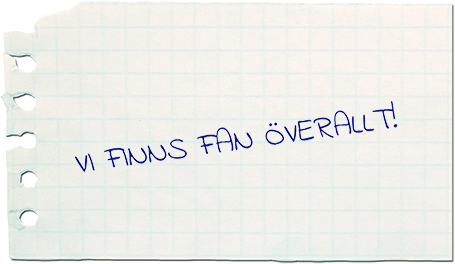 VI FINNS FAN ÖVERALLT!